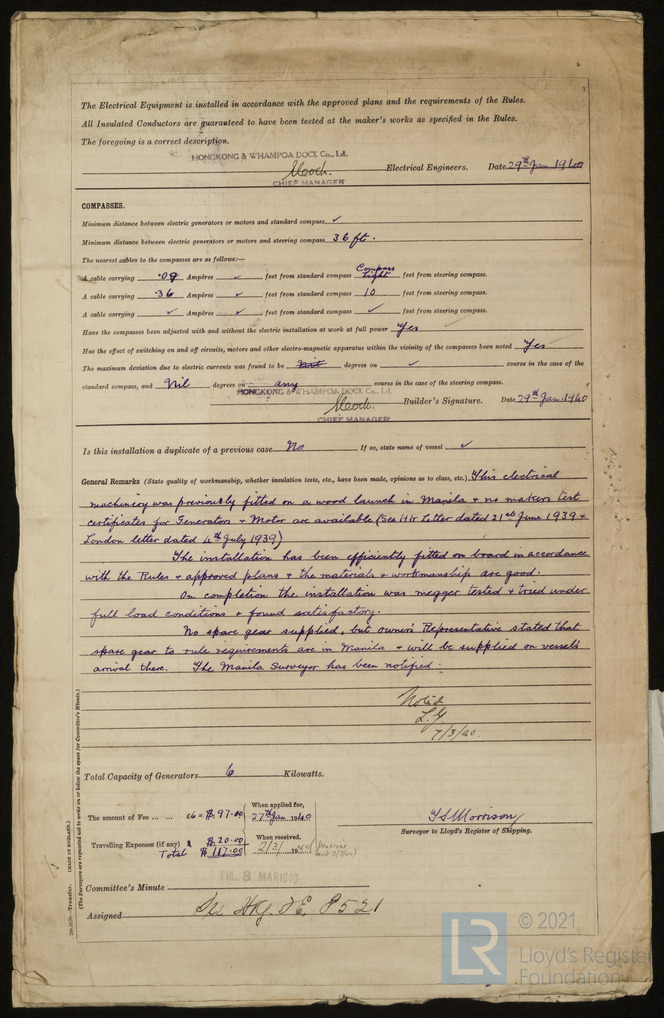 The Electrical Equipment is installed in accordance with the approved plans and the requirements of the Rules.
All Insulated Conductors are guaranteed to have been tested at the maker's works as specified in the Rules.
The foregoing is a correct description.
HONGKONG & WHAMPOA DOCK Co., Ld.
Electrical Engineers. Date 29th Jan 1940
CHIEF MANAGER
COMPASSES.
Minimum distance between electric generators or motors and standard compass ✓
Minimum distance between electric generators or motors and steering compass 36 ft.
The nearest cables to the compasses are as follows:—
A cable carrying .09 Ampères ✓ feet from standard compass Compass light feet from steering compass.
A cable carrying .36 Ampères ✓ feet from standard compass 10 feet from steering compass.
A cable carrying ✓ Ampères ✓ feet from standard compass ✓ feet from steering compass.
Have the compasses been adjusted with and without the electric installation at work at full power Yes
Has the effect of switching on and off circuits, motors and other electro-magnetic apparatus within the vicinity of the compasses been noted Yes
The maximum deviation due to electric currents was found to be Nil degrees on ✓ course in the case of the
standard compass, and Nil degrees on any course in the case of the steering compass.
HONGKONG & WHAMPOA DOCK Co., Ld.
Builder's Signature. Date 29th Jan. 1940
CHIEF MANAGER
Is this installation a duplicate of a previous case No If so, state name of vessel ✓
General Remarks (State quality of workmanship, whether insulation tests, etc., have been made, opinions as to class, etc.) This electrical
machinery was previously fitted on a wood launch in Manila & no makers test
certificates for Generators & Motor are available (See H.K. Letter dated 21st June 1939 &
London letter dated 4th July 1939)
The installation has been efficiently fitted on board in accordance
with the Rules & approved plans & the materials & workmanship are good.
On completion the installation was megger tested & tried under
full load conditions & found satisfactory.
No spare gear supplied, but owner's Representative stated that
spare gear to rule requirements are in Manila & will be supplied on vessel's
arrival there. The Manila Surveyor has been notified.
Noted
L.Y.
7/3/40
Total Capacity of Generators 6 Kilowatts.
The amount of Fee ... ... £6 = $97.00 When applied for, 27th Jan 1940
Travelling Expenses (if any) $20.00 When received, 2/3/1940
Total $117.00
T S Morrison
Surveyor to Lloyd's Register of Shipping.
FRI. 8 MAR 1940
Committee's Minute
Assigned See Hkg. F.E. 8521
(The Surveyors are requested not to write on or below the space for Committee's Minute.)
(MADE IN ENGLAND.)
Transfer.
© 2021
LR
Lloyd's Register
Foundation